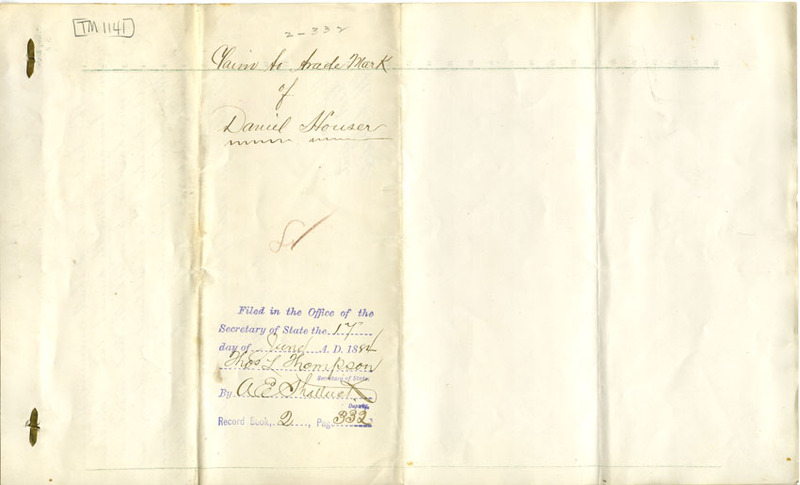 TM 1141
2-332
Claim to trade Mark
of
Daniel Houser
Filed in the Office of the
Secretary of State the 17
day of June A. D. 1884
Thos L Thompson
Secretary of State.
By A E Shattuck
Deputy.
Record Book, 2, Page 332